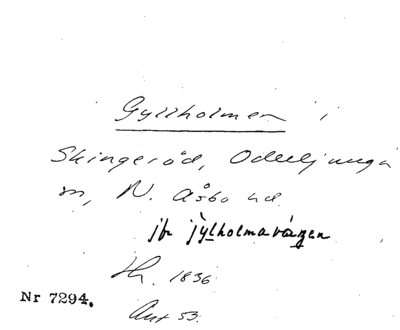 Gyllholmen i
Skingeröd, Oderljunga
sn, N. Åsbo hd
jfr jylholmavägen
Th. 1836
Nr 7294.
Ant 53.